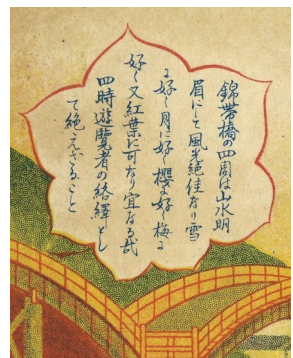 錦帯橋の四周は山水明
眉にして風光絶佳なり雪
に好く月に好く櫻に好く梅に
好く又紅葉に可なり宜なる哉
四時遊覧者の絡繹とし
て絶えざること